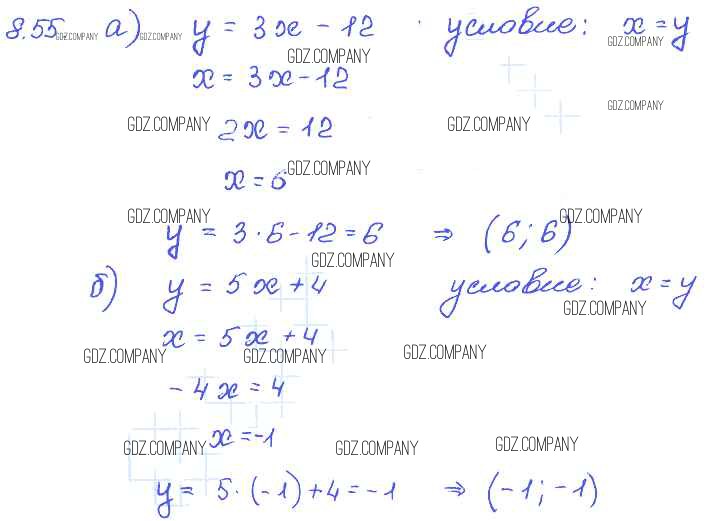 8.55. GDZ.COMPANY а) GDZ.COMPANY y = 3x - 12 условие: x = y
GDZ.COMPANY GDZ.COMPANY
x = 3x - 12
GDZ.COMPANY
GDZ.COMPANY 2x = 12 GDZ.COMPANY
x = 6 GDZ.COMPANY
GDZ.COMPANY GDZ.COMPANY
y = 3 · 6 - 12 = 6 ⇒ (6; 6)
GDZ.COMPANY
б) y = 5x + 4 условие: x = y
GDZ.COMPANY
x = 5x + 4
GDZ.COMPANY GDZ.COMPANY GDZ.COMPANY
- 4x = 4
x = -1
GDZ.COMPANY GDZ.COMPANY GDZ.COMPANY
y = 5 · (-1) + 4 = -1 ⇒ (-1; -1)